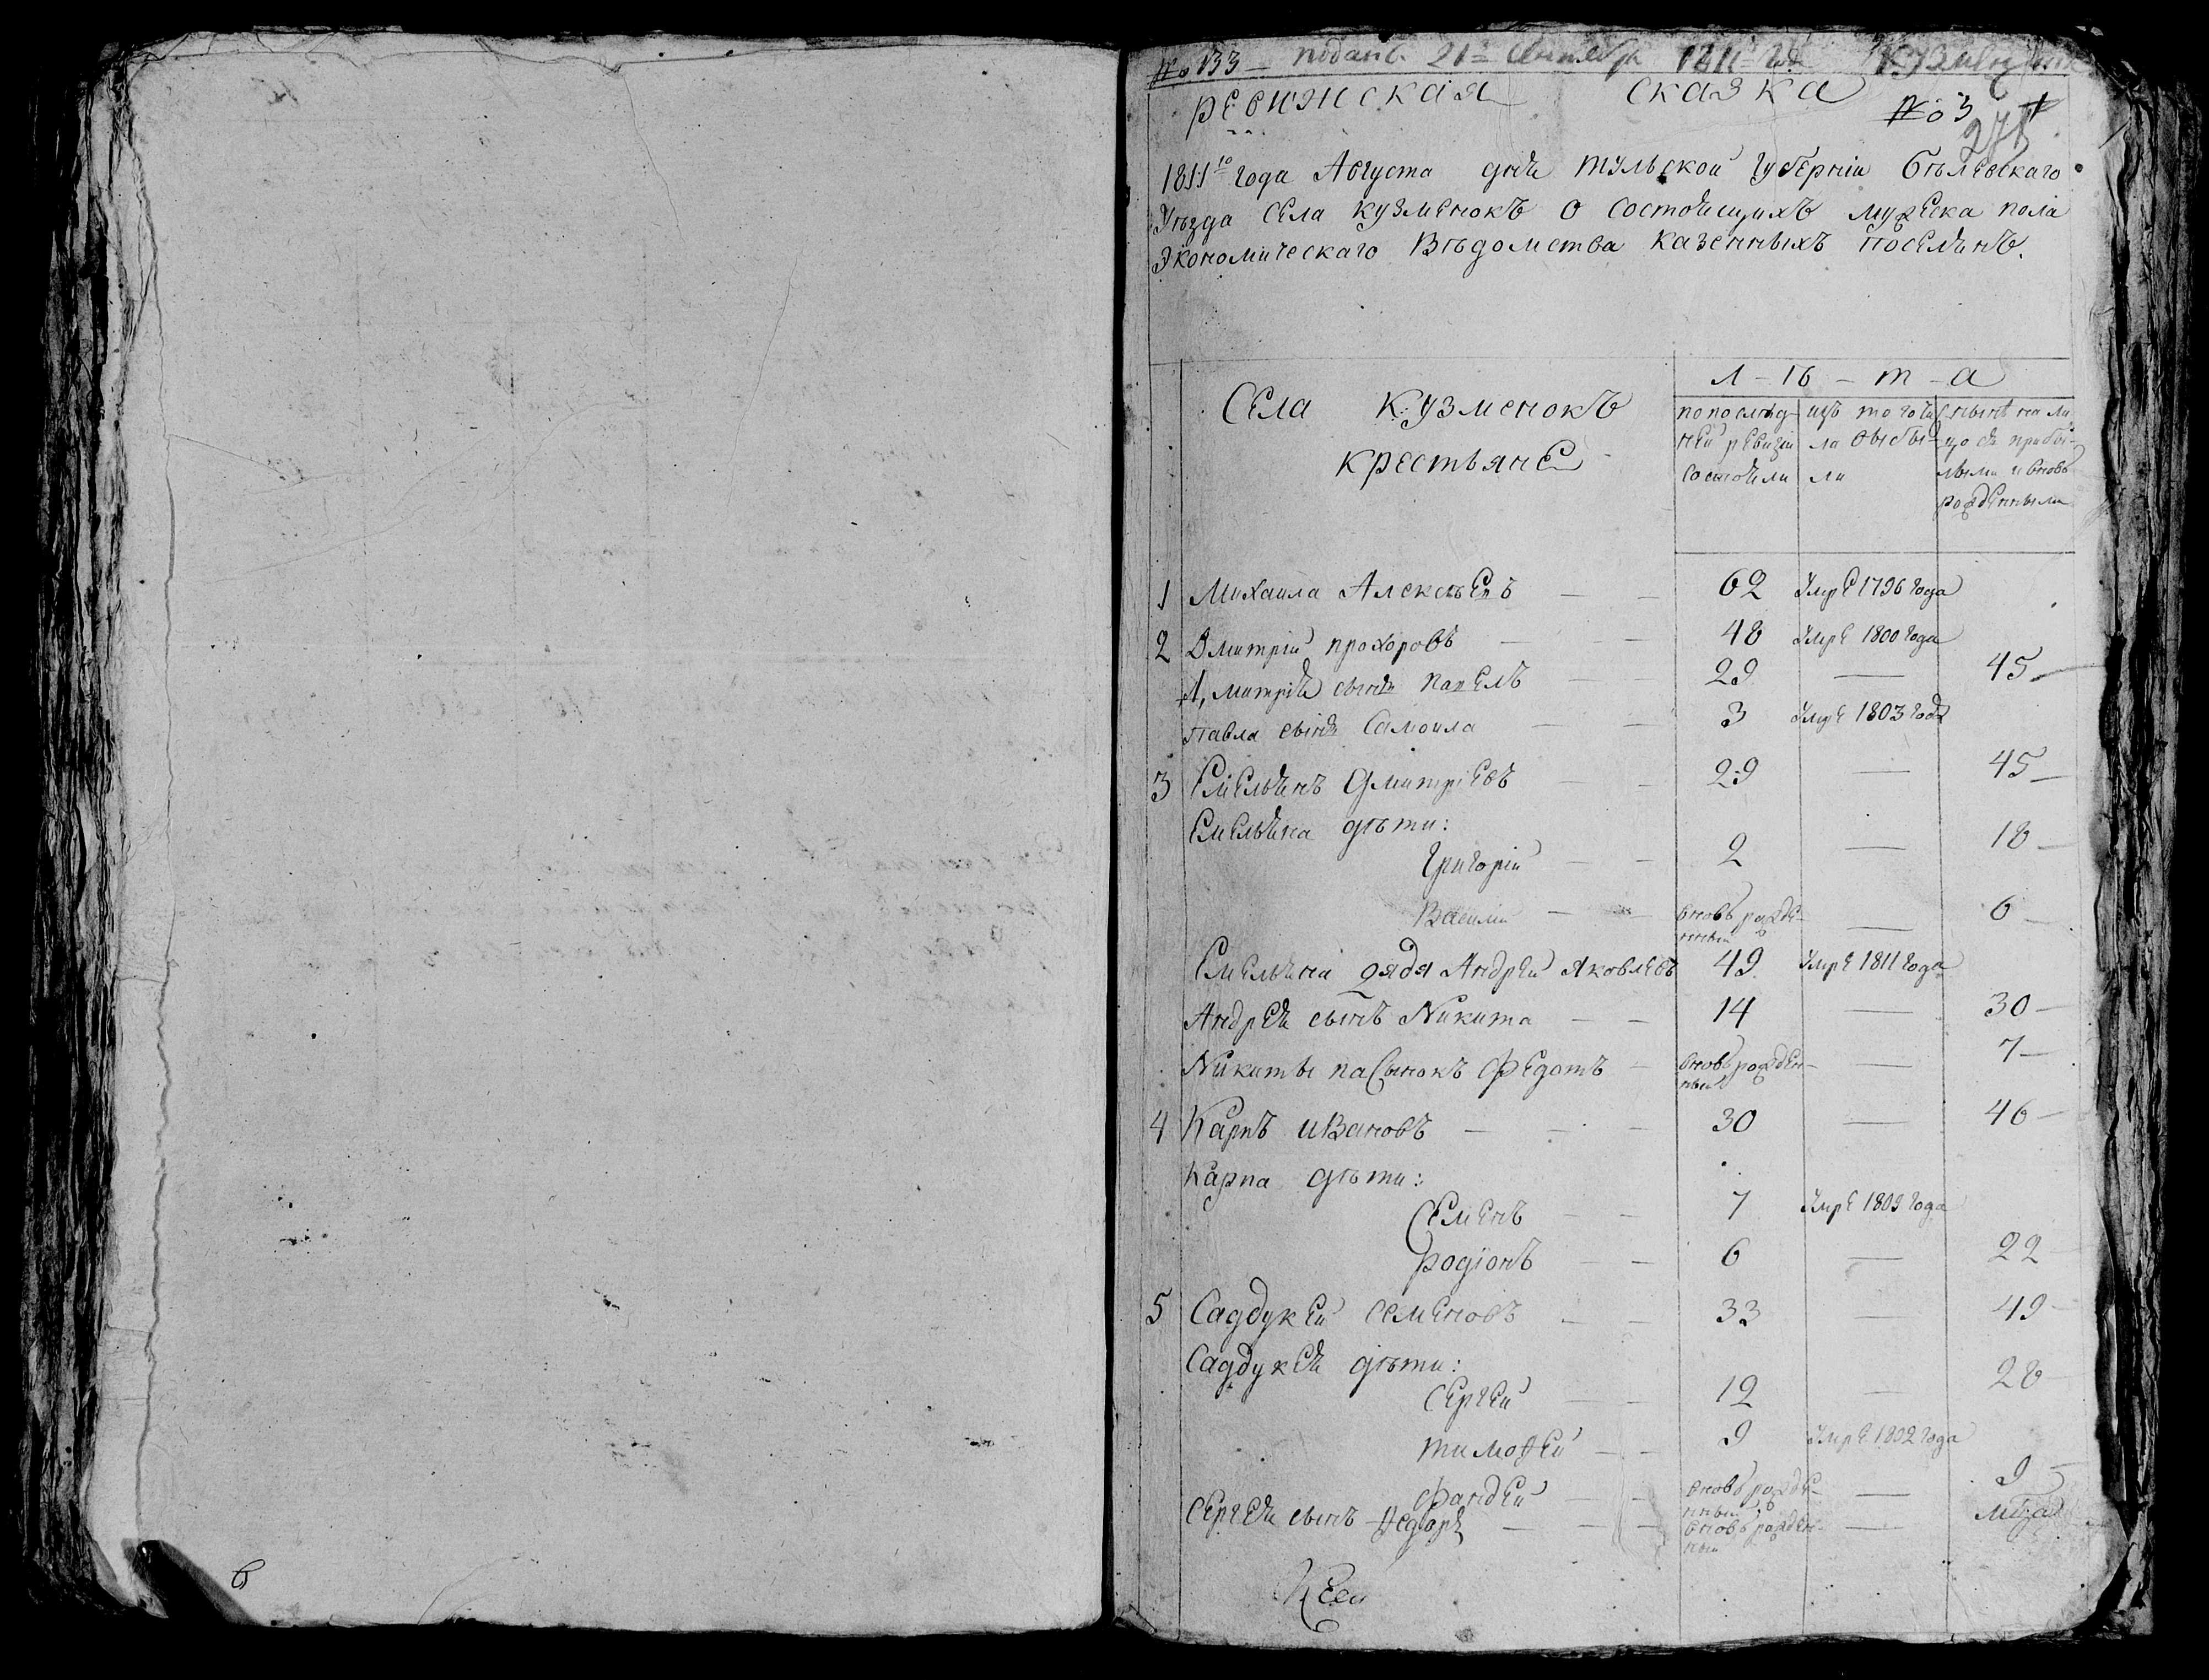 № 133 – подана 21го Сентября 1811го года
рЕвижская сказка
№ 3
271
1811го года Августа дня Тульской губЕрніи бѢлЕвскаго
уѢзда сЕла кузмЕнокЪ о состоящихЪ мужЕска пола
экономическаго вѢдомства казенныхЪ посЕлянЪ.
Л – Ѣ – т – а
СЕла кузменокЪ
крестьянЕ
по послѢд-
нЕй рЕвизіи
состояли
изЪ того чи
ла выбы-
ли
нынѢ на ли
цо сЪ прибы-
лыми и вновь
рождЕнными
1 Михаила АлексѢЕвЪ — — 62 умрЕ 1796 года
2 Дмитрій прохоровЪ — — 48 умрЕ 1800 года
Дмитрія сынЪ павЕлЪ — — 29 — 45 —
павла сынЪ Самоила — — 3 умрЕ 1803 года
3 ЕмЕльянЪ дмитріЕвЪ — — 29 — 45 —
ЕмЕльяна дѢти:
григорій — — 2 — 18 —
Василій — — вновь рождЕ-
нный — 6 —
ЕмЕльяна дядя АндрЕй яковлЕвЪ 49 умрЕ 1811 года
АндрЕя сынЪ Никита — — 14 — 30 —
Никиты пасынокЪ фЕдотЪ — вновь рождЕн-
ный — 7 —
4 КарпЪ ивановЪ — — — 30 — 46 —
карпа дѢти:
СЕмЕнЪ — — 7 умрЕ 1809 года
родіонЪ — — 6 — 22 —
5 СаддукЕй семЕновЪ — — 33 — 49 —
СаддукЕя дѢти:
СЕргЕй — — 12 — 28 —
тимофЕй — — 9 умрЕ 1802 года
фандЕй — — вновь рождЕ-
нный — 9 —
СЕргЕя сынЪ Федорь — — — вновь рождЕн-
ный —
б